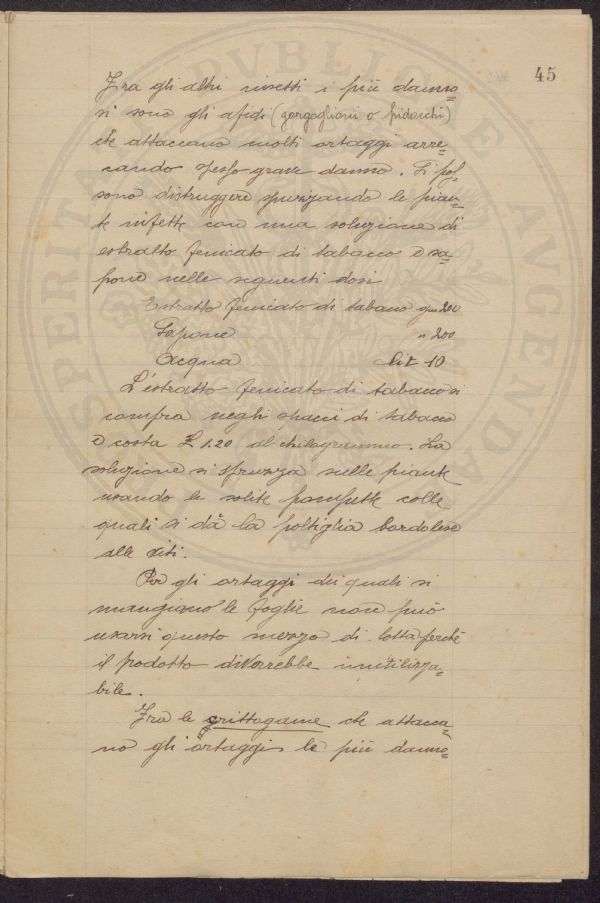 45
Fra gli altri insetti i più danno=
si sono gli afidi (gorgoglioni o pidocchi)
che attaccano molti ortaggi arre=
cando spesso grave danno. Si pos=
sono distruggere spruzzando le pian=
te infette con una soluzione di
estratto fenicato di tabacco e sa=
pone nelle seguenti dosi
Estratto fenicato di tabacco gr. 200
Sapone " 200
Acqua Lit 10
L'estratto fenicato di tabacco si
compra negli spacci di tabacco
e costa £ 1.20 al chilogrammo. La
soluzione si spruzza sulle piante
usando le solite pompette colle
quali si dà la poltiglia bordolese
alle viti.
Per gli ortaggi dei quali si
mangiano le foglie non può
usarsi questo mezzo di lotta perchè
il prodotto diverrebbe inutilizza=
bile.
Fra le crittogame che attacca=
no gli ortaggi le più danno=